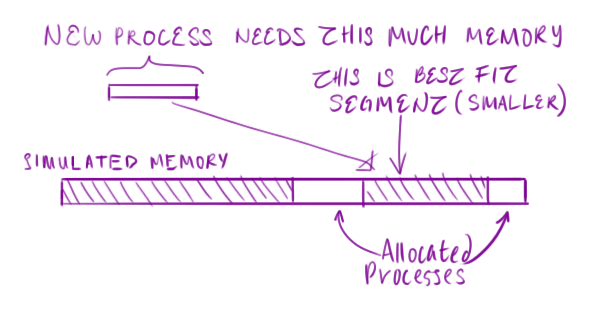 NEW PROCESS NEEDS THIS MUCH MEMORY
THIS IS BEST FIT
SEGMENT (SMALLER)
SIMULATED MEMORY
Allocated
Processes